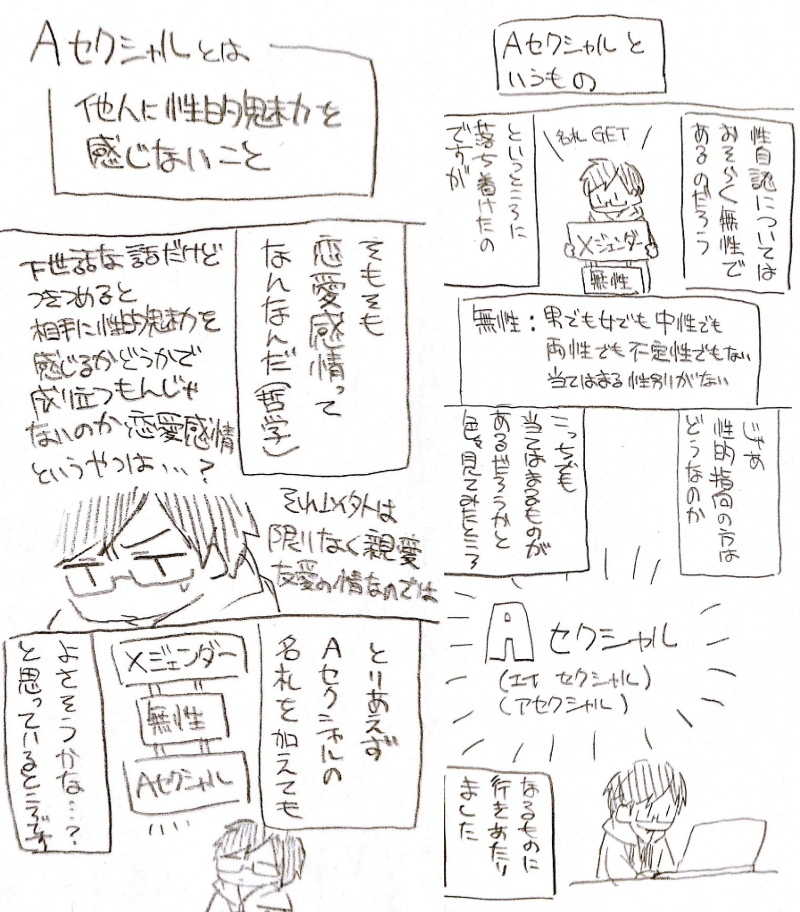 Aセクシャルと
いうもの
性自認については
おそらく無性で
あるのだろう
名札GET
Xジェンダー
無性
というところに
落ち着けたの
ですが
無性：男でも女でも中性でも
両性でも不定性でもない
当てはまる性別がない
じゃあ
性的指向の方は
どうなのか
こっちでも
当てはまるものが
あるだろうかと
色々見てみたところ
Aセクシャル
(エイセクシャル)
(アセクシャル)
なるものに
行きあたり
ました
Aセクシャルとは
他人に性的魅力を
感じないこと
そもそも
恋愛感情って
なんなんだ(哲学)
下世話な話だけど
つきつめると
相手に性的魅力を
感じるかどうかで
成り立つもんじゃ
ないのか恋愛感情
というやつは…？
それ以外は
限りなく親愛
友愛の情なのでは
とりあえず
Aセクシャルの
名札を加えても
Xジェンダー
無性
Aセクシャル
よさそうかな…？
と思っているところです